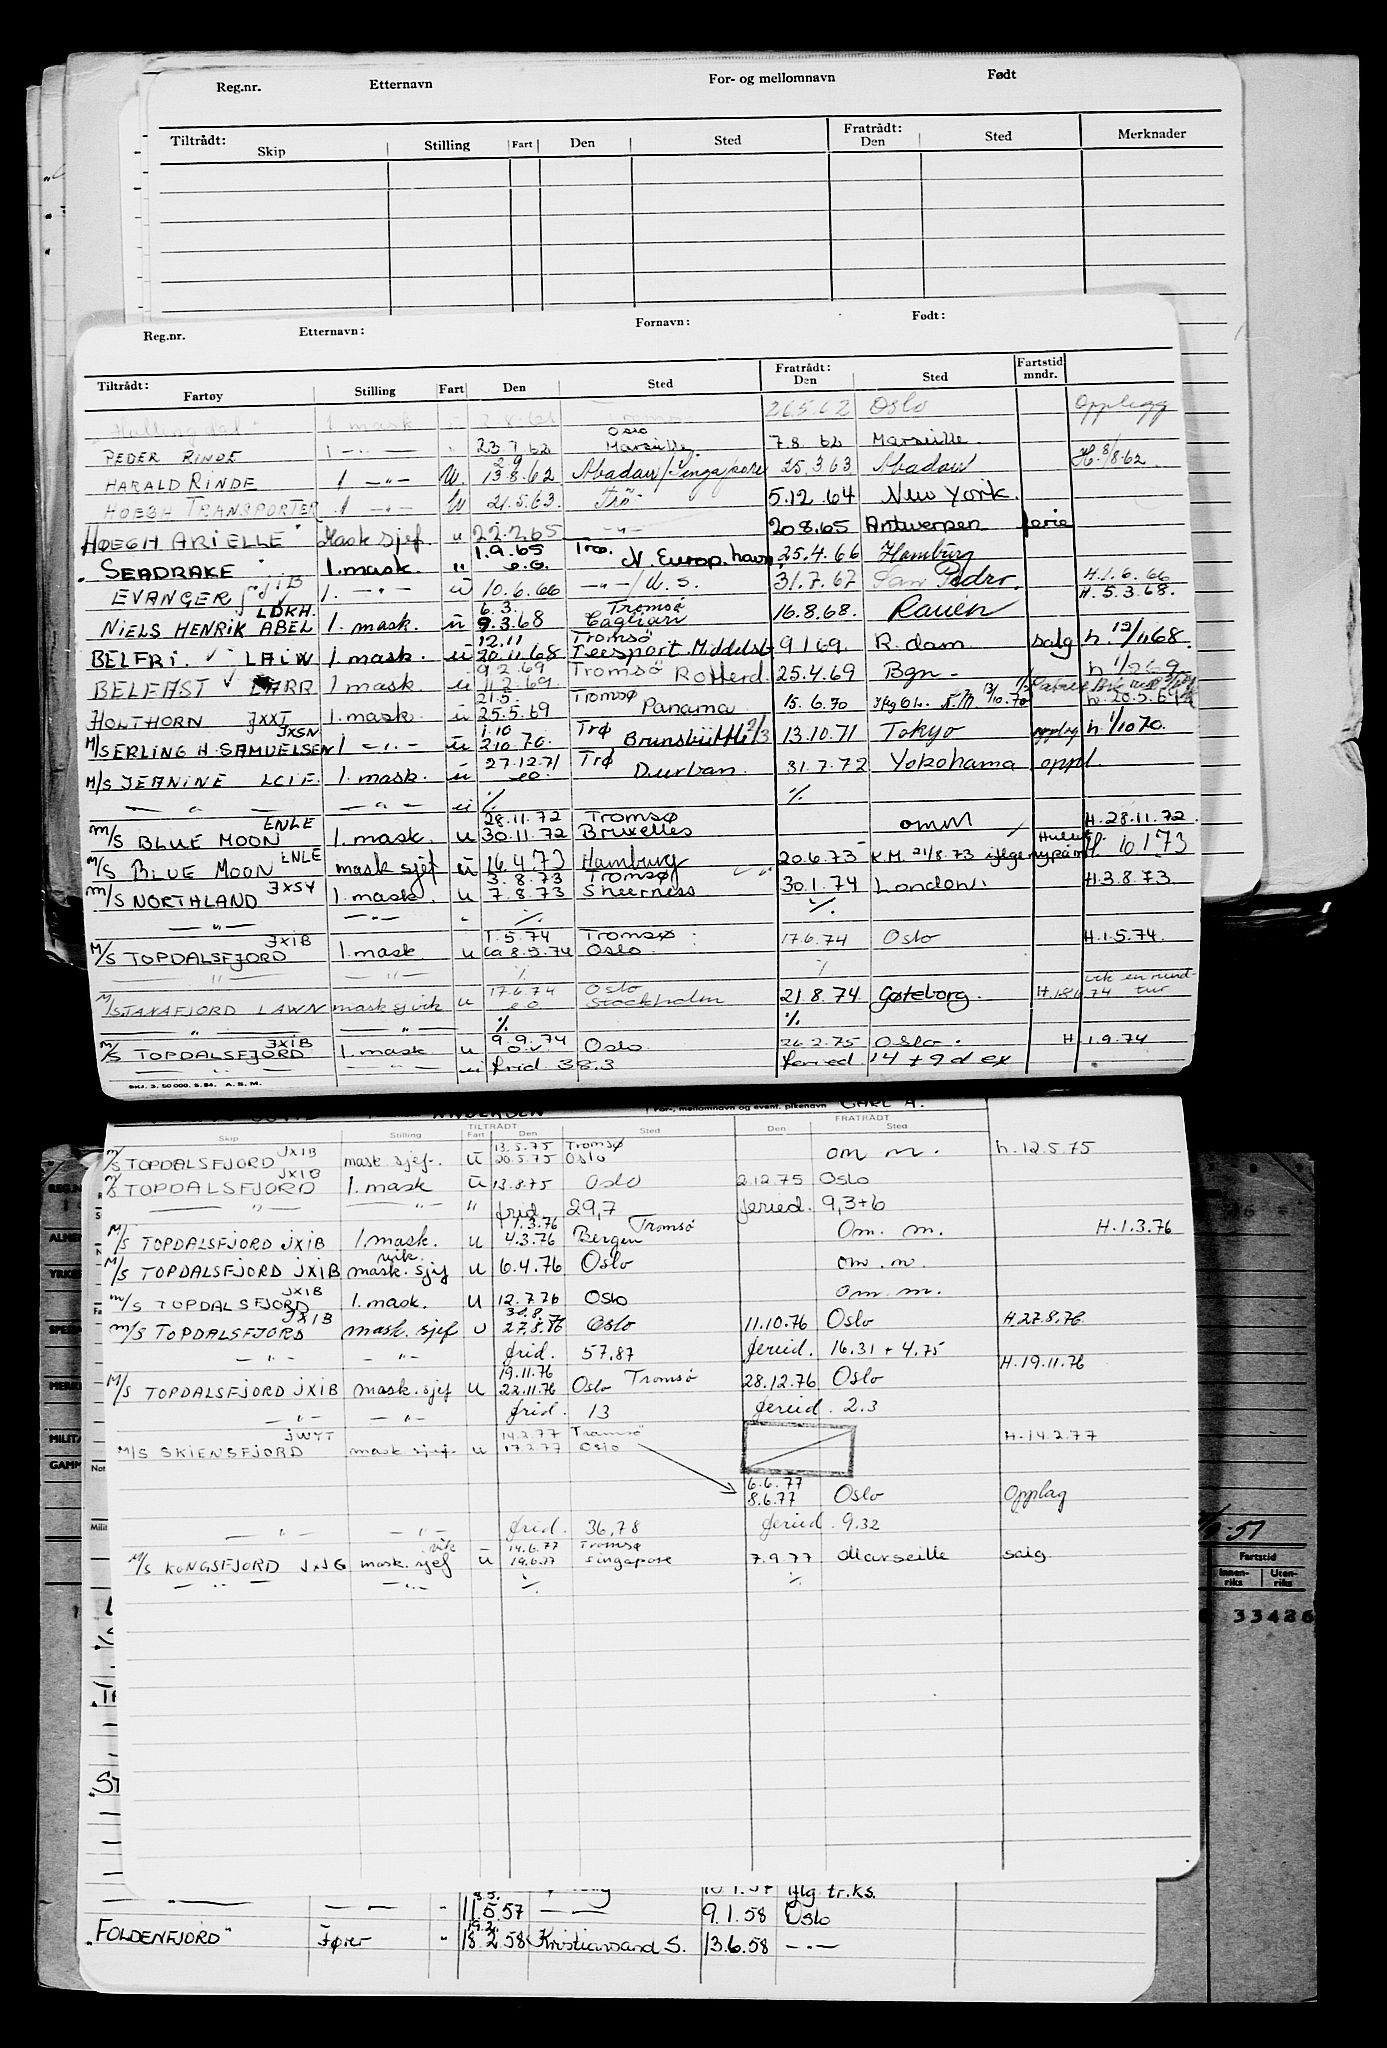 Reg.nr. Etternavn For- og mellomnavn Født
Tiltrådt: Skip Stilling Fart Den Sted Fratrådt: Den Sted Merknader
Reg.nr. Etternavn: Fornavn: Født:
Tiltrådt: Fartøy Stilling Fart Den Sted Fratrådt: Den Sted Fartstid mndr.
"Hallingdal" 1 mask 26.5.62 Oslo Opplegg
Oslo
PEDER RINDE 1 -"- 23.7.62 Marseille 7.8.62 Marseille.
HARALD RINDE 1 -"- U. 13.8.62 Abadan/Singapore 25.3.63 Abadan H. 8/8.62
HOEGH TRANSPORTER 1 -"- U 21.5.63 Trö 5.12.64 New York.
HØEGH ARIELLE Mask sjef. u 22.2.65 -"- 20.8.65 Antwerpen ferie
1.9.65 Trø.
"SEADRAKE" 1. mask. " e.o. N. Europ. havn 25.4.66 Hamburg
EVANGER 1. -"- u 10.6.66 -"-/U.S. 31.7.67 San Pedro. H.1.6.66
LDKH. 6.3. Tromsø H. 5.3.68.
NIELS HENRIK ABEL 1. mask. u 9.3.68 Cagliari 16.8.68. Rauen
12.11 Tromsö
BELFRI. LAIW 1. mask. u 20.11.68 Teesport Middelsb 9.1.69. R.dam salg h. 12/11 68.
9.2.69 Tromsö
BELEAST 1. mask u 11.2.69. Rotterd. 25.4.69 Bgn-
21.5. Tromsø
HOLTHORN JXXI 1. mask. u 25.5.69 Panama 15.6.70 h. 20.5.69
JXSN 1.10 Trø
M/S ERLING H. SAMUELSEN 1 -"- u 2.10.70. Brunsbüttel 13.10.71 Tokyo opplag h. 1/10 70.
27.12.71 Trø
M/S JEANINE LCIF. 1. mask. u eo. Durban. 31.7.72 Yokohama oppl.
- " - - " - u % %
ENLE 28.11.72 Tromsø
M/S BLUE MOON 1. mask. u 30.11.72 Bruxelles omm H. 28.11.72.
M/S BLUE MOON LNLE mask sjef u 16.4.73 Hamburg 20.6.73 K.M. 21/8.73 H. 10.1.73
3.8.73 Tromsø
M/S NORTHLAND JXSY 1. mask. u 7.8.73 Sheerness 30.1.74 London. H.3.8.73.
- " - - " - " % %
JXIB 1.5.74 Tromsø
M/S TOPDALSFJORD 1. mask u ca 8.5.74 Oslo 17.6.74 Oslo H.1.5.74.
" - " - % %
17.6.74 Oslo vik en rund-
M/S TANAFJORD LAWN mask sj vik u eo Stockholm 21.8.74 Gøteborg. H. 18.6.74 tur
- " - - " - % %
JXIB 9.9.74
M/S TOPDALSFJORD 1. mask u o.v. Oslo 26.2.75 Oslo. H 1.9.74
- " - - " - u frid 38.3 feried 14 + 9 d ex
SKJ. 3. 50 000. 5. 54. A. S. M.
ANDERSEN For-, mellomnavn og event. pikenavn CARL A.
TILTRÅDT FRATRÅDT
Skip Stilling Fart Den Sted Den Sted
JXIB 13.5.75 Tromsø
M/S TOPDALSFJORD mask. sjef. u 20.5.75 Oslo om m. h. 12.5.75
M/S TOPDALSFJORD JXIB 1. mask u 13.8.75 Oslo 2.12.75 Oslo
- " - - " - " frid 29,7 feried. 9,3+6
1.3.76 Tromsø
M/S TOPDALSFJORD JXIB 1. mask. u 4.3.76 Bergen Om. m. H.1.3.76
vik.
M/S TOPDALSFJORD JXIB mask. sjef u 6.4.76 Oslo om. m.
M/S TOPDALSFJORD JXIB 1. mask. u 12.7.76 Oslo om. m.
JXIB
M/S TOPDALSFJORD mask. sjef u 27.8.76 Oslo 11.10.76 Oslo H.27.8.76
- " - - " - frid. 57,87 feried. 16.31 + 4.75
19.11.76 H.19.11.76
M/S TOPDALSFJORD JXIB mask. sjef u 22.11.76 Oslo Tromsø 28.12.76 Oslo
- " - - " - frid. 13 feried. 2.3
JWYT 14.2.77 Tromsø H.14.2.77
M/S SKIENSFJORD mask. sjef. u 17.2.77 Oslo
6.6.77
8.6.77 Oslo Opplag
- " - - " - frid. 36,78 feried. 9.32
vik 14.6.77 Tromsø
M/S KONGSFJORD JXJG mask. sjef u 19.6.77 Singapore 7.9.77 Marseille salg
- " - - " - % %
/9-51
Fartstid
Innenriks Utenriks
33486
10.1.57 iflg tr.ks.
8.5.
- " - 11.5.57 - " - 9.1.58 Oslo
19.2.
"FOLDENFJORD" Fører " 18.2.58 Kristiansand S. 13.6.58 - " -